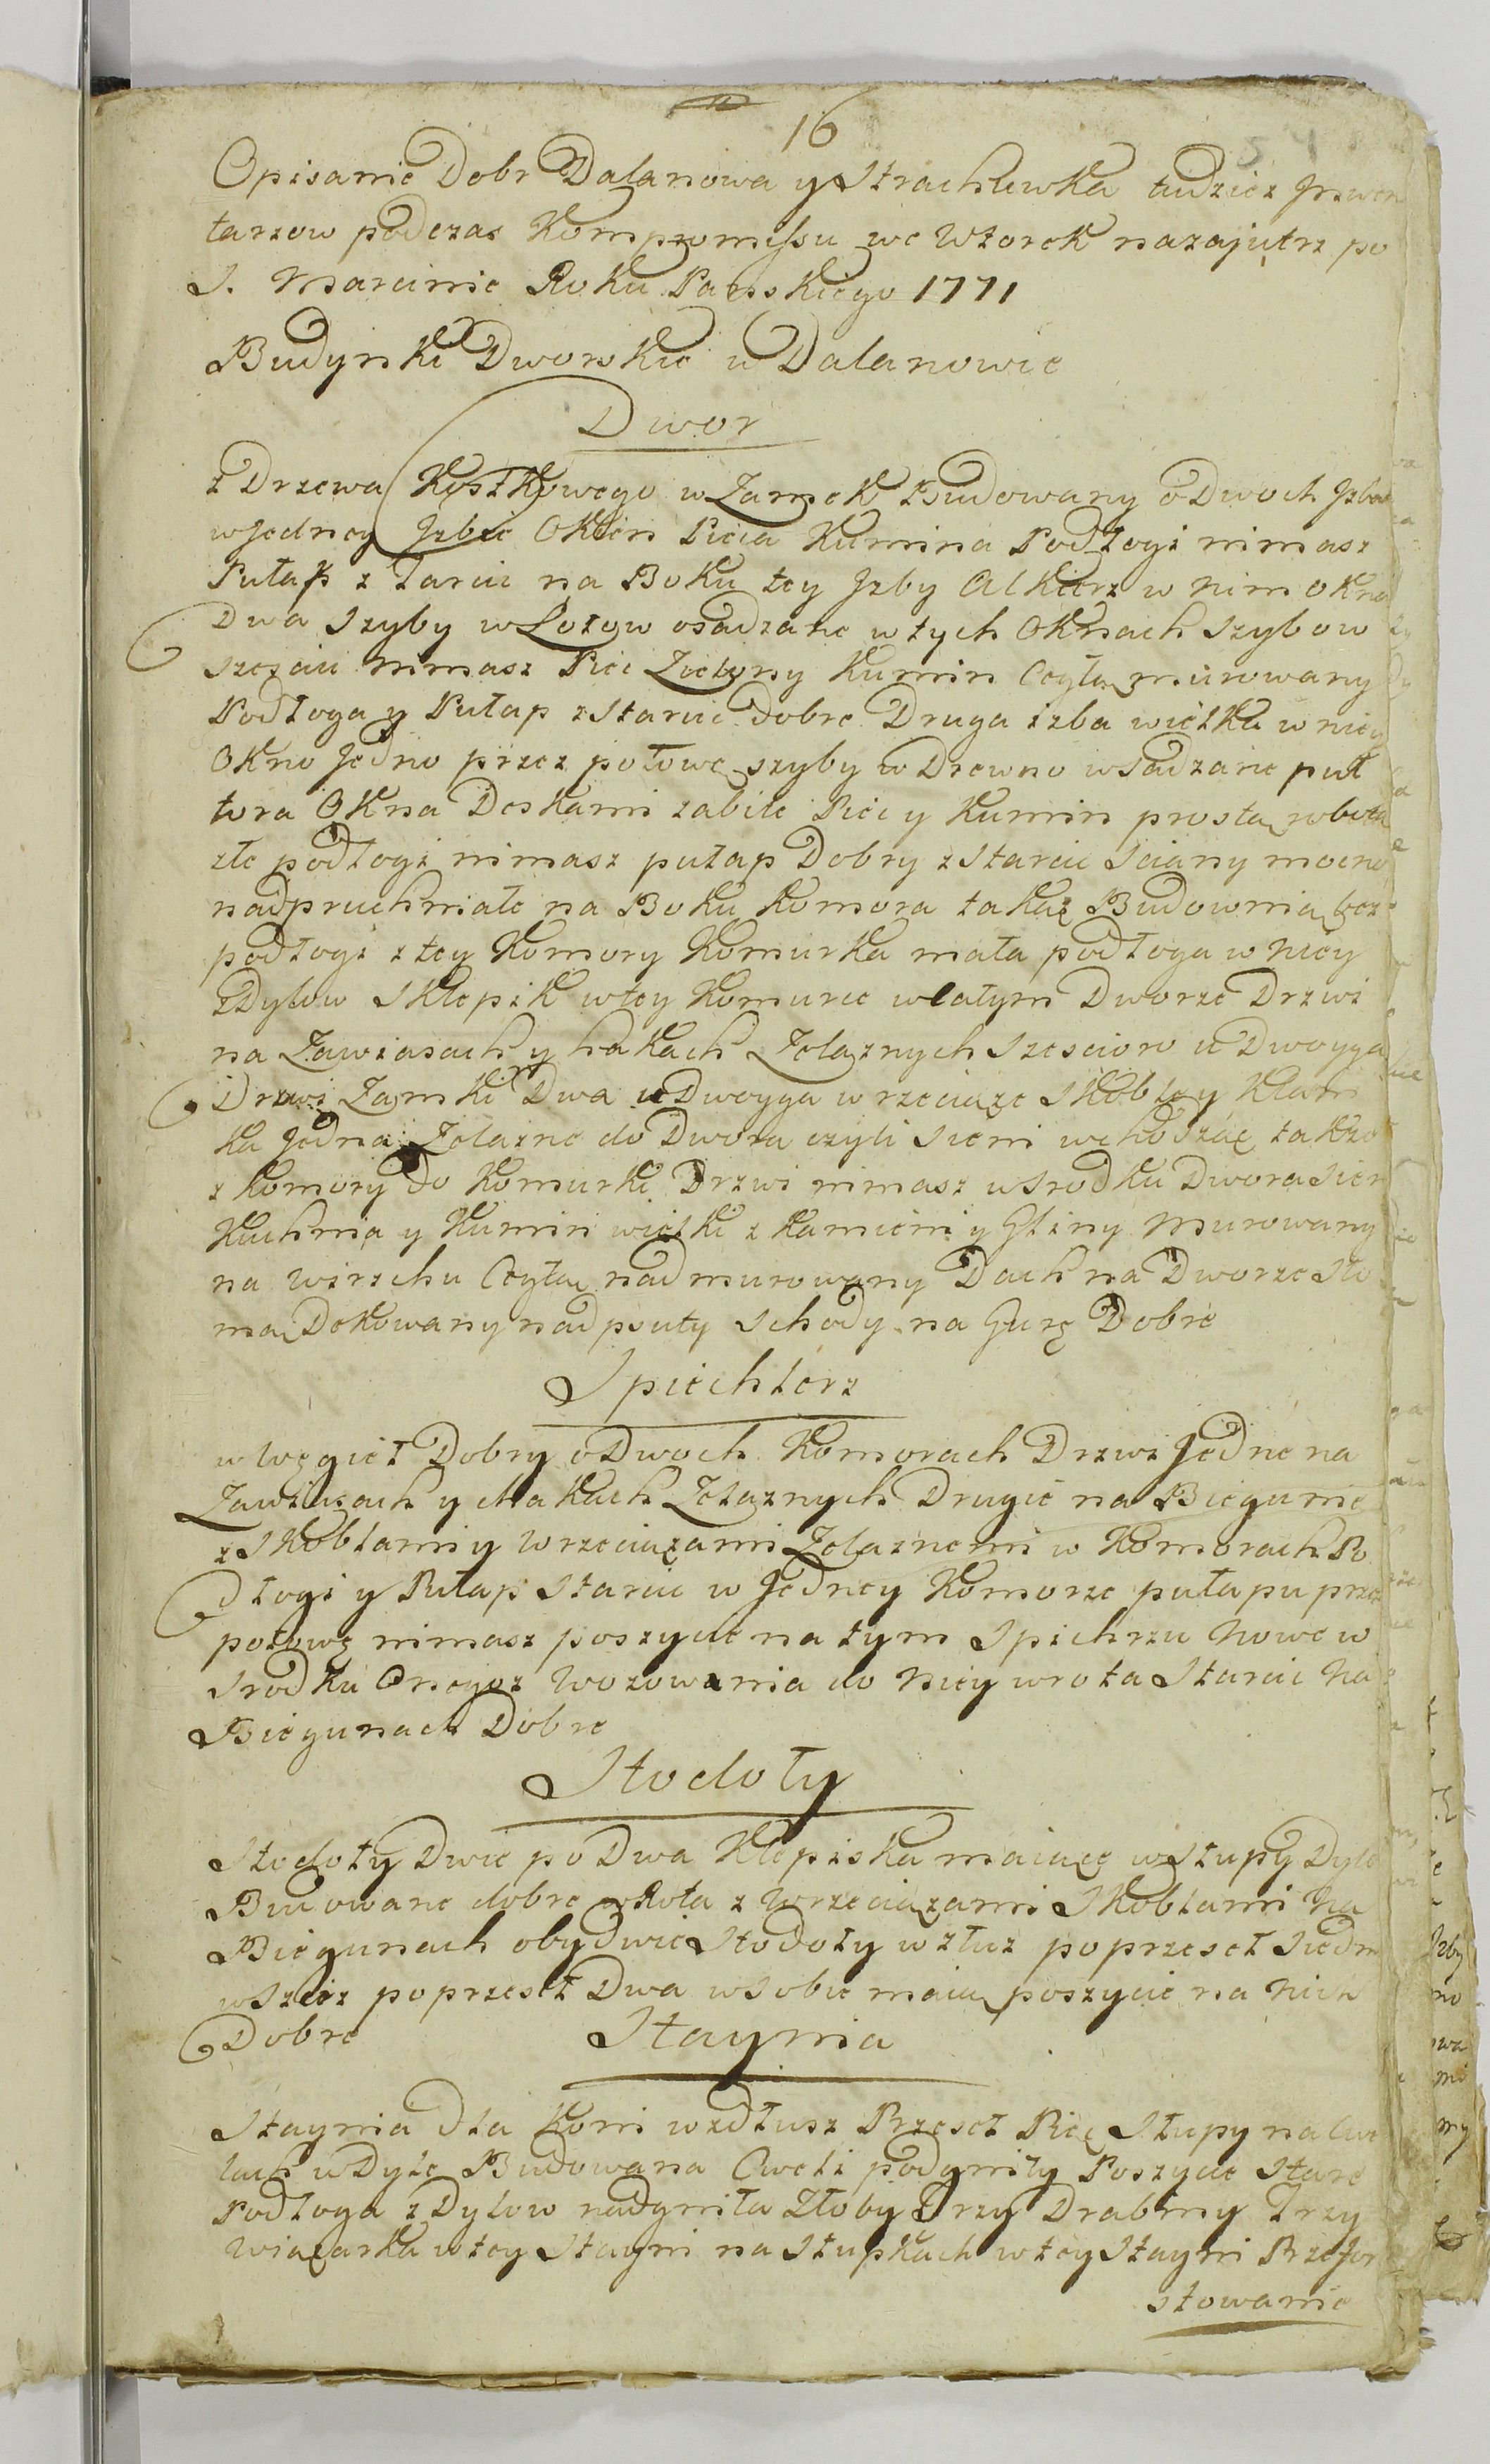 16
Opisanie Dobr Dalanowa y Strachuwka tudziez Jnwen
tarzow podczas Kompromissu we Wtorek nazajutrz po
S. Marcinie Roku Panskiego 1771
Budynki Dworskie w Dalanowie
Dwor
z Drzewa Kostkowego w Zamek Budowany o Dwoch Jzbach
w Jedney Jzbie Okien Pieca Kumina Podłogi nimasz
Pułap z Tarcic na Boku tey Jzby Alkierz w nim okna
Dwa Szyby w Łołow osadzane w tych Oknach Szybow
szesciu nimasz Piec Zielony Kumin Cegłą murowany
Podłoga y Pułap z Starcic dobre Druga izba wielka w niey
Okno Jedno przez połowe szyby w Drewno wsadzane puł
tora Okna Deskami zabite Piec y Kumin prostą robotą
złe podłogi nimasz pułap Dobry z Starcic Sciany mocno
nadpruchniałe na Boku Komora takaz Budownia bez
podłogi z tey Komory Komurka mała podłoga w niey
z Dylow Sklepik w tey Komurce w całym Dworze Drzwi
na Zawiasach y hakach Zelaznych Szescioro u Dwoyga
Drzwi Zamki Dwa u Dwoyga wrzeciąze Skoble y Klam
ka Jedna Zelazne do Dwora czyli Sieni wchodząc takze
z Komory do Komurki Drzwi nimasz w srodku Dwora Sien
Kuchnia y Kumin wielki z Kamieni y Gliny Murowany
na wirzchu Cegłą nadmurowany Dach na Dworze Sło
mą Dekowany nadpsuty Schody na Gurę Dobre
Spichlerz
w Węgieł Dobry o Dwoch Komorach Drzwi Jedne na
Zawiasach y Hakach Zelaznych Drugie na Biegunie
z Skoblami y Wrzeciązami Zelaznemi w Komorach Po
dłogi y Pułap Starcic w Jedney Komorze pułapu przez
połowę nimasz poszycie na tym Spichrzu Nowe w
Srodku Onegoz Wozownia do niey wrota Starcic Na
Biegunach Dobre
Stodoły
Stodoły Dwie po Dwa Klepiska maiące w Słupy Dyle
Budowane dobre wRota z Wrzeciązami Skoblami Na
Biegunach obydwie Stodoły w złuz po przeseł Siedm
w Szerz po przeseł Dwa w Sobie maią poszycie na nich
Dobre Staynia
Staynia Dla Koni wzdłusz Przeseł Pięc Słupy na Cwe
lach w Dyle Budowana Cweli podgniły Poszycie Stare
Podłoga z Dylow nadgniła Złoby Trzy Drabiny Trzy
Wiązarka w tey Stayni na Słupkach w tey Stayni Przefor
stowanie